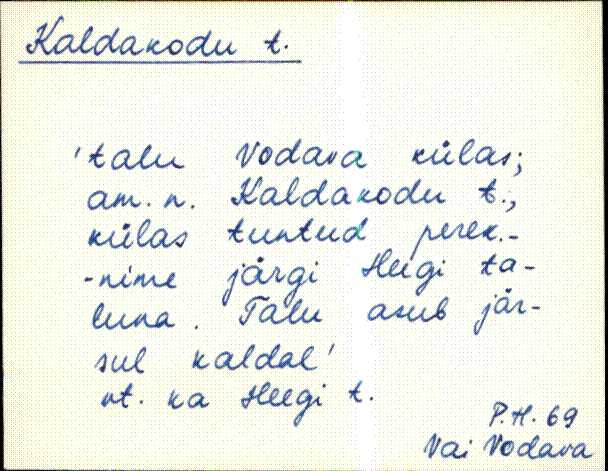 Kaldakodu t.
'talu Vodava külas;
am. n. Kaldakodu t.,
külas tuntud perek.-
-nime järgi Heegi ta-
luna. Talu asub jär-
sul kaldal'
vt. ka Heegi t.
P.H. 69
Vai Vodava